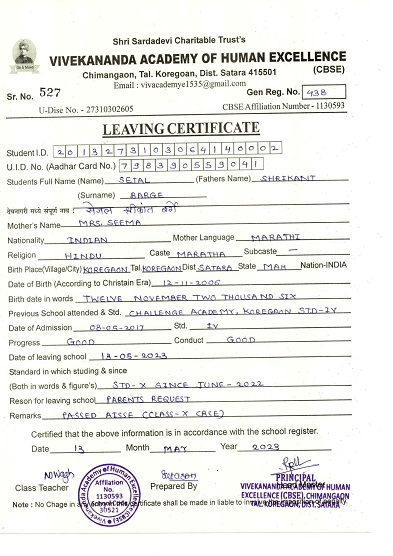 Shri Sardadevi Charitable Trust's
VIVEKANANDA ACADEMY OF HUMAN EXCELLENCE
(CBSE)
Chimangaon, Tal. Koregoan, Dist. Satara 415501
Email : vivacademye1535@gmail.com
Sr. No. 527
Gen Reg. No. 438
U-Dise No. - 27310302605
CBSE Affiliation Number - 1130593
LEAVING CERTIFICATE
Student I.D. 2013273103064140002
U.I.D. No. (Aadhar Card No.) 798390559041
Students Full Name (Name) SEJAL (Fathers Name) SHRIKANT
(Surname) BARGE
देवनागरी मध्ये संपूर्ण नाव : सेजल श्रीकांत बर्गे
Mother's Name MRS. SEEMA
Nationality INDIAN Mother Language MARATHI
Religion HINDU Caste MARATHA Subcaste —
Birth Place(Village/City) KOREGAON Tal. KOREGAON Dist SATARA State MAH Nation-INDIA
Date of Birth (According to Christain Era) 12-11-2006
Birth date in words TWELVE NOVEMBER TWO THOUSAND SIX
Previous School attended & Std. CHALLENGE ACADEMY, KOREGAON STD-IV
Date of Admission 08-05-2017 Std. IV
Progress GOOD Conduct GOOD
Date of leaving school 13-05-2023
Standard in which studing & since
(Both in words & figure's) STD-X SINCE JUNE-2022
Reson for leaving school PARENTS REQUEST
Remarks PASSED AISSE (CLASS-X CBSE)
Certified that the above information is in accordance with the school register.
Date 13 Month MAY Year 2023
Class Teacher
Prepared By
Vivekananda Academy of Human Excellence
Affiliation
No.
1130593
School Code
30521
PRINCIPAL
VIVEKANANDA ACADEMY OF HUMAN
EXCELLENCE (CBSE), CHIMANGAON
TAL. KOREGAON, DIST. SATARA
Note : No Chage in any certificate shall be made in liable to